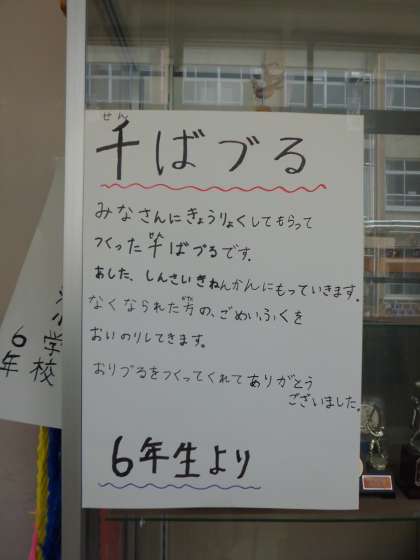 せん
千ばづる
みなさんにきょうりょくしてもらって
つくった千ばづるです。
あした、しんさいきねんかんにもっていきます。
なくなられた方の、ごめいふくを
おいのりしてきます。
おりづるをつくってくれてありがとう
ございました。
6年生より
小学校
6年